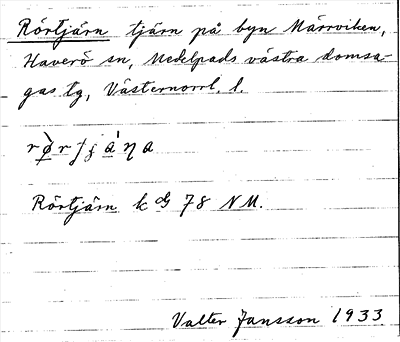 Rörtjärn tjärn på byn Märrviken,
Haverö sn, Medelpads västra domsa-
gas tg, Västernorrl. l.
Rörtjärn k G 78 NU.
Valter Jansson 1933